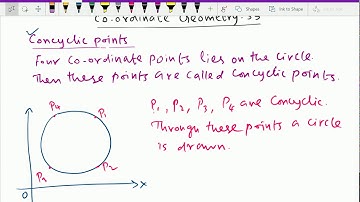 Co-ordinate Geometry-33
Concyclic points
Four co-ordinate points lies on the circle.
Then these points are called Concyclic points.
P₁, P₂, P₃, P₄ are Concyclic.
Through these points a circle
is drawn.
P₄ P₁
P₂
O X